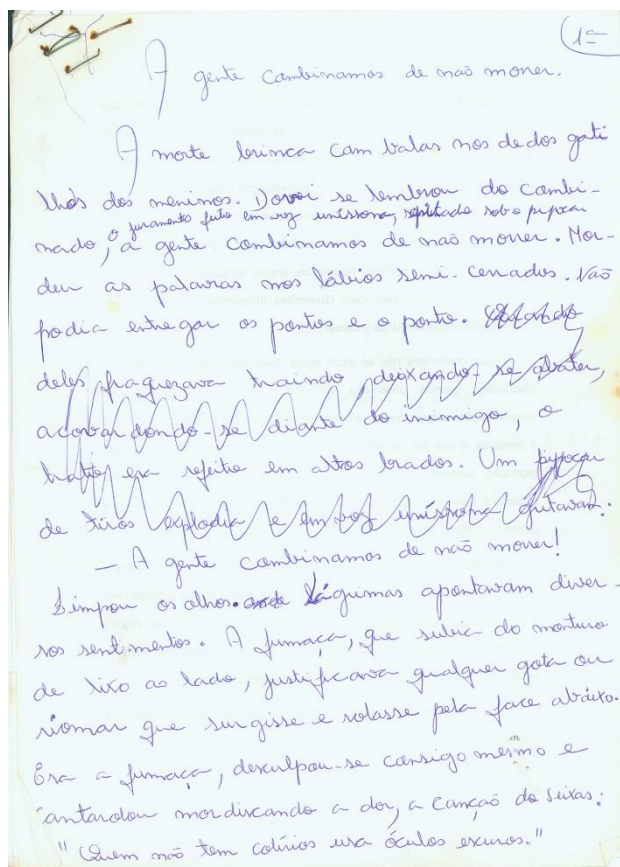 1ª
A gente combinamos de não morrer.
A morte brinca com balas nos dedos gati
lhos dos meninos. Dorvi se lembrou do combi-
o juramento feito em voz uníssona, repetido sob o pipocar
nado, a gente combinamos de não morrer. Mor-
deu as palavras nos lábios semi-cerrados. Não
podia entregar os pontos e o ponto.
deles fraquezava traindo deixando se abater,
acovardando-se diante do inimigo, o
trato era refeito em altos brados. Um pipocar
de tiros explodia e em voz uníssona gritavam:
– A gente combinamos de não morrer!
Limpou os olhos. lágrimas apontavam diver-
sos sentimentos. A fumaça, que subia do monturo
de lixo ao lado, justificava qualquer gota ou
riomar que surgisse e rolasse pela face abaixo.
Era a fumaça, desculpou-se consigo mesmo e
cantarolou mordiscando a dor, a canção do Seixas:
"Quem não tem colírios usa óculos escuros."